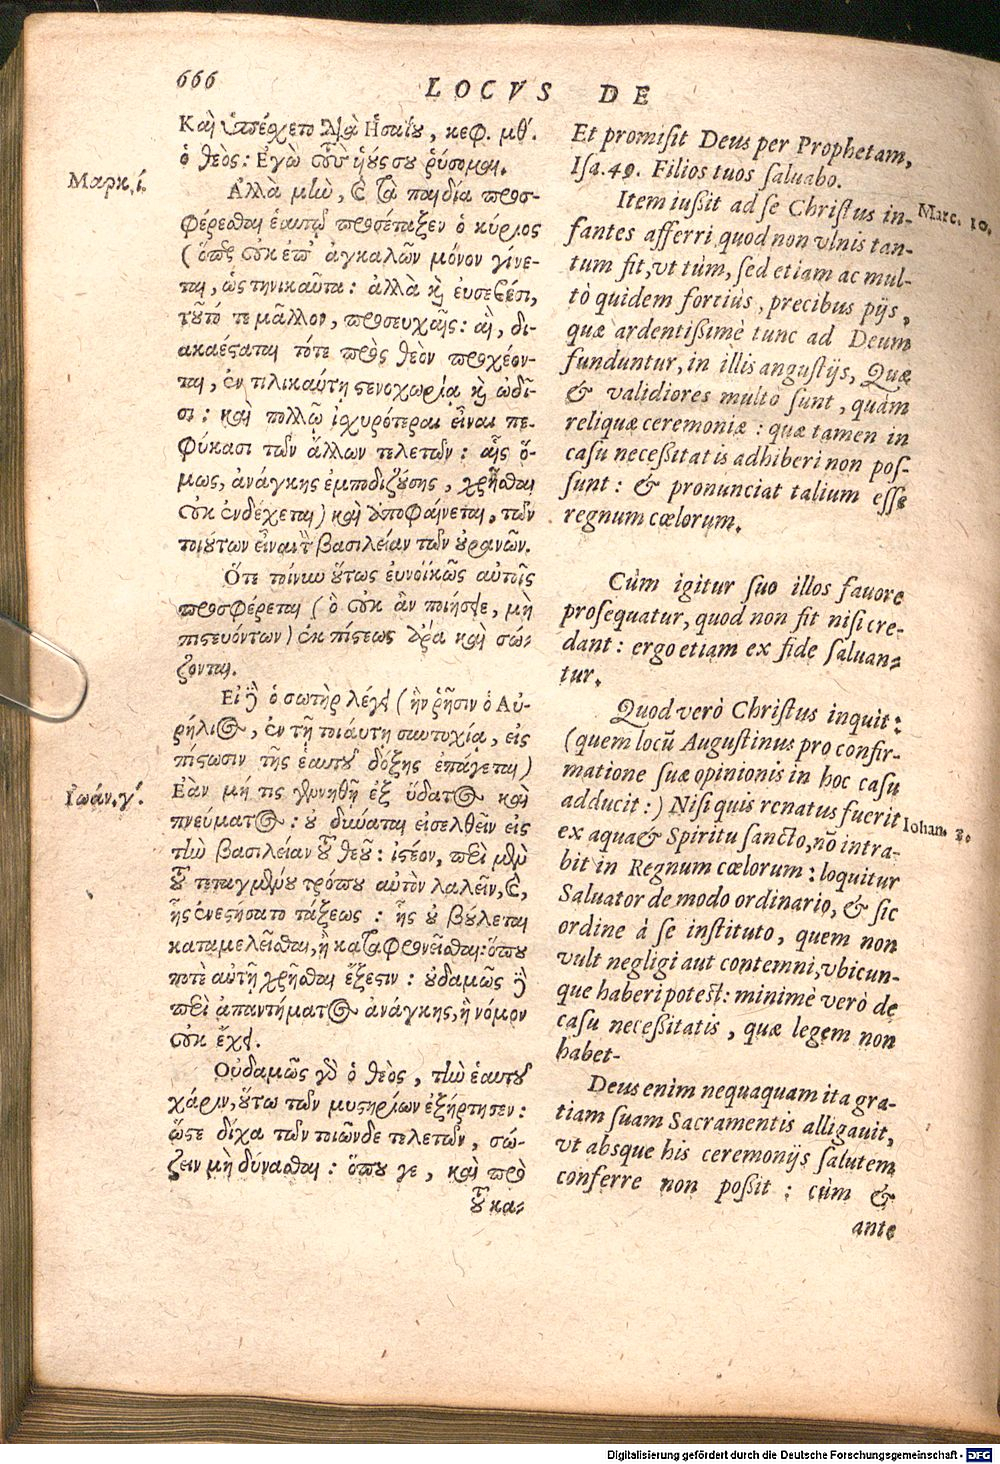 666
LOCVS DE
Καὶ ὑπέσχετο διὰ Ησαΐου, κεφ. μθ΄.
ὁ θεὸς: Εγὼ τοὺς ἡούς σου ῥύσομαι.
Μαρκ. ί.
Αλλὰ μὴν, καὶ τὰ παιδία προσ-
φέρεσθαι ἑαυτῷ προσέταξεν ὁ κύριος
(ὅπερ οὐκ ἐπ' ἀγκαλῶν μόνον γίνε-
ται, ὡς τηνικαῦτα: ἀλλὰ καὶ ἐυσεβέσι,
τοῦτό τε μᾶλλον, προσευχαῖς: αἳ, δι-
ακαέσαται τότε πρὸς θεὸν προχέον-
ται, ἐν τιλικαύτῃ στενοχωρίᾳ καὶ ὠδῖ-
σι: καὶ πολλῷ ἰσχυρότεραι εἶναι πε-
φύκασι τῶν ἄλλων τελετῶν: αἷς ὅ-
μως, ἀνάγκης ἐμποδιζούσης, χρῆσθαι
οὐκ ἐνδέχεται) καὶ ἀποφαίνεται, τῶν
τοιούτων εἶναι τὴν βασιλείαν τῶν οὐρανῶν.
Ὅτε τοίνυν οὕτως ἐυνοϊκῶς αὐτοῖς
προσφέρεται (ὃ οὐκ ἂν ποιήσειε, μὴ
πιστευόντων) ἐκ πίστεως ἄρα καὶ σώ-
ζονται.
Εἰ δὲ ὁ σωτὴρ λέγει (ἣν ῥῆσιν ὁ Αὐ-
ρήλιος, ἐν τῇ τοιάυτῃ συντυχίᾳ, εἰς
πίστωσιν τῆς ἑαυτοῦ δόξης ἐπάγεται)
Ιωάν. γ΄.
Εὰν μή τις γεννηθῇ ἐξ ὕδατος καὶ
πνεύματος: οὐ δύναται εἰσελθεῖν εἰς
τὴν βασιλείαν τοῦ θεοῦ: ἰστέον, περὶ μὲν
τοῦ τεταγμένου τρόπου αὐτὸν λαλεῖν, καὶ,
ἧς ἐνεστήσατο τάξεως: ἧς οὐ βούλεται
καταμελεῖσθαι, ἢ καταφρονεῖσθαι: ὅπου
ποτὲ αὐτῇ χρῆσθαι ἔξεστιν: οὐδαμῶς δὲ
περὶ ἀπαντήματος ἀνάγκης, ἣ νόμον
οὐκ ἔχει.
Οὐδαμῶς γὰρ ὁ θεὸς, τὴν ἑαυτοῦ
χάριν, οὕτω τῶν μυστηρίων ἐξήρτησεν:
ὥστε δίχα τῶν τοιῶνδε τελετῶν, σώ-
ζειν μὴ δύνασθαι: ὅπου γε, καὶ πρὸ
τοῦ κα-
Et promisit Deus per Prophetam,
Isa. 49. Filios tuos saluabo.
Item iussit ad se Christus in-
Marc. 10.
fantes afferri quod non vlnis tan-
tum fit, vt tùm, sed etiam ac mul-
tò quidem fortiùs, precibus pijs,
quæ ardentissimè tunc ad Deum
funduntur, in illis angustijs, Quæ
& validiores multò sunt, quàm
reliquæ ceremoniæ: quæ tamen in
casu necessitatis adhiberi non pos-
sunt: & pronunciat talium esse
regnum cœlorum.
Cùm igitur suo illos fauore
prosequatur, quod non fit nisi cre-
dant: ergo etiam ex fide saluan-
tur.
Quod verò Christus inquit:
(quem locũ Augustinus pro confir-
matione suæ opinionis in hoc casu
adducit:) Nisi quis renatus fuerit
Iohan. 3.
ex aqua & Spiritu sancto, nõ intra-
bit in Regnum cœlorum: loquitur
Saluator de modo ordinario, & sic
ordine à se instituto, quem non
vult negligi aut contemni, vbicun-
que haberi potest: minimè verò de
casu necessitatis, quæ legem non
habet.
Deus enim nequaquam ita gra-
tiam suam Sacramentis alligauit,
vt absque his ceremonijs salutem
conferre non possit: cùm &
ante
Digitalisierung gefördert durch die Deutsche Forschungsgemeinschaft - DFG